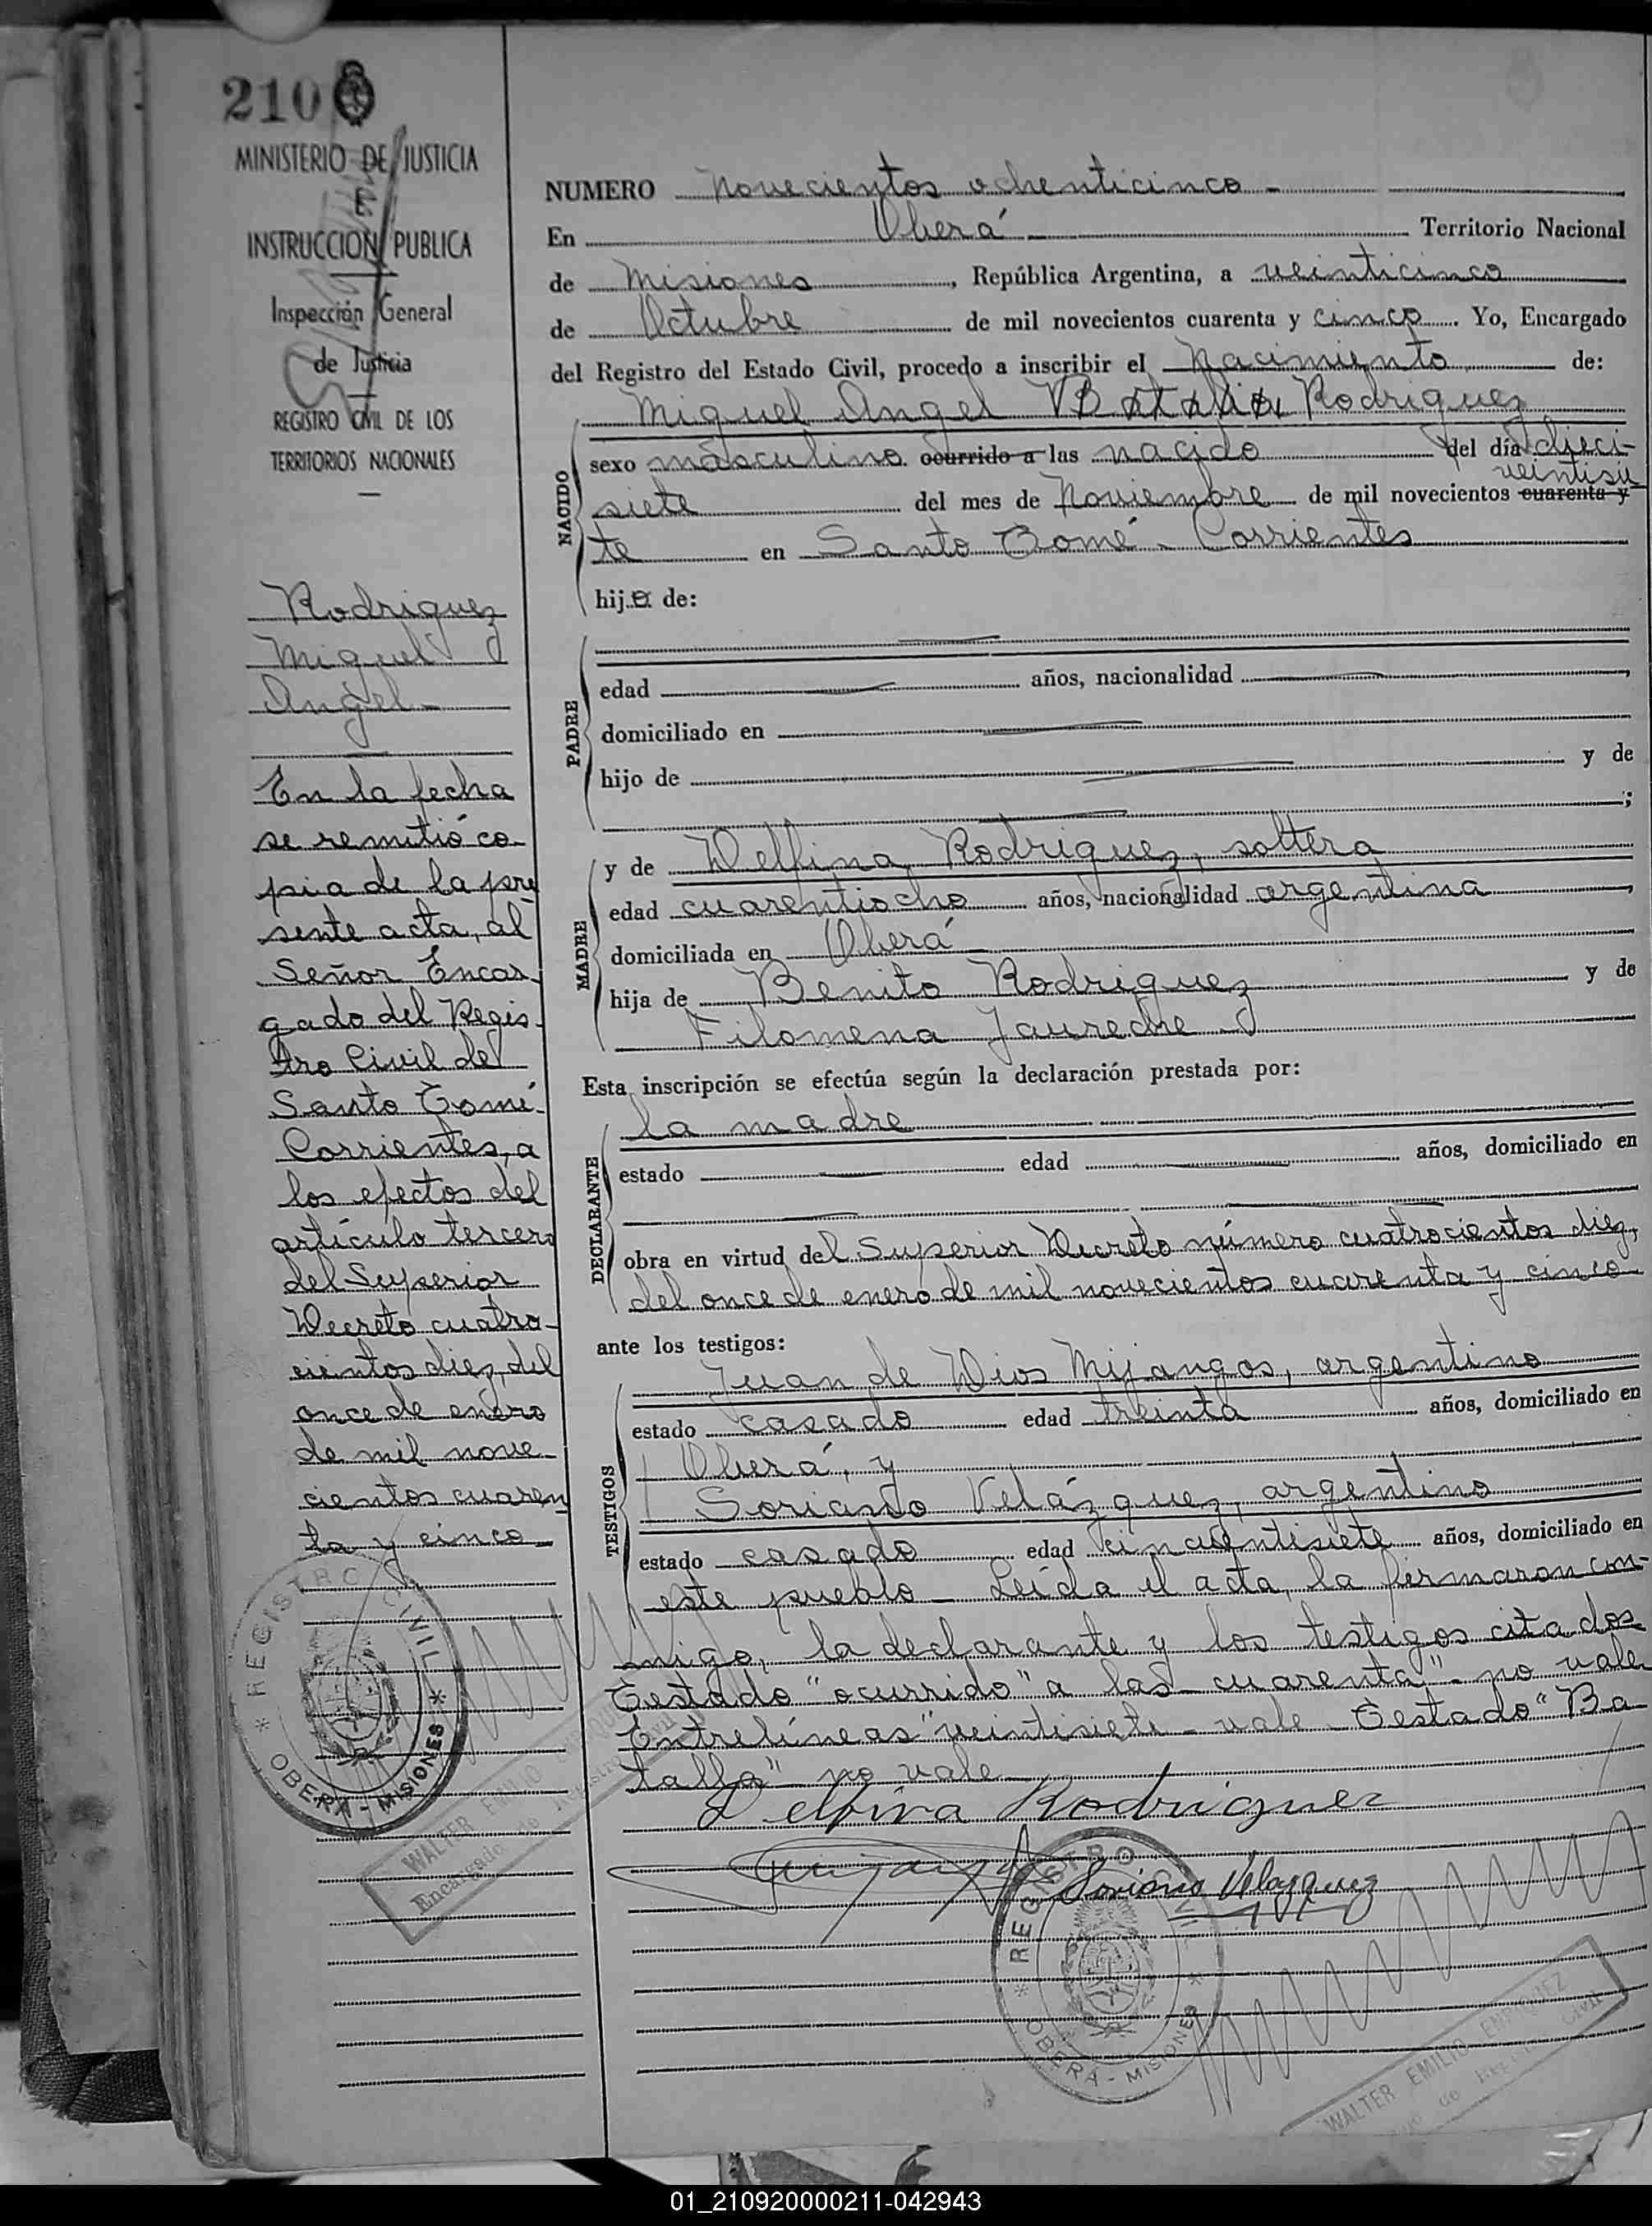 210
MINISTERIO DE JUSTICIA
E
INSTRUCCION PUBLICA
Inspección General
de Justicia
REGISTRO CIVIL DE LOS
TERRITORIOS NACIONALES
Rodriguez
Miguel
Angel -
En la fecha
se remitió co-
pia de la pre
sente acta, al
Señor Encar
gado del Regis-
tro Civil de
Santo Tomé-
Corrientes, a
los efectos del
artículo tercero
del Superior
Decreto cuatro-
cientos diez, del
once de enero
de mil nove-
cientos cuaren
ta y cinco
REGISTRO CIVIL
* OBERA - MISIONES *
WALTER EMILIO
Encargado de Registro Civil
NUMERO novecientos ochenticinco -
En Oberá Territorio Nacional
de Misiones, República Argentina, a veinticinco
de Octubre de mil novecientos cuarenta y cinco. Yo, Encargado
del Registro del Estado Civil, procedo a inscribir el nacimiento de:
Miguel Angel Batalla Rodriguez
NACIDO
sexo masculino ocurrido a las nacido del día dieci-
veintisie
siete del mes de Noviembre de mil novecientos cuarenta y
te en Santo Tomé - Corrientes
hijo de:
PADRE
edad años, nacionalidad
domiciliado en
hijo de y de
;
MADRE
y de Delfina Rodriguez, soltera
edad cuarentiocho años, nacionalidad argentina
domiciliada en Oberá
hija de Benito Rodriguez y de
Filomena Jaureche
Esta inscripción se efectúa según la declaración prestada por:
DECLARANTE
la madre
estado edad años, domiciliado en
obra en virtud del Superior Decreto número cuatrocientos diez,
del once de enero de mil novecientos cuarenta y cinco
ante los testigos:
TESTIGOS
Juan de Dios Mijangos, argentino
estado casado edad treinta años, domiciliado en
Oberá, y
Soriano Velázquez, argentino
estado casado edad cincuentisiete años, domiciliado en
este pueblo - Leída el acta, la firmaron con-
migo, la declarante y los testigos citados
Testado "ocurrido" a las - cuarenta" - no vale
Entrelíneas "veintisiete - vale - Testado "Ba-
talla" - no vale
Delfina Rodriguez
Soriano Velazquez
REGISTRO CIVIL
* OBERA - MISIONES *
WALTER EMILIO
Civil
01_210920000211-042943